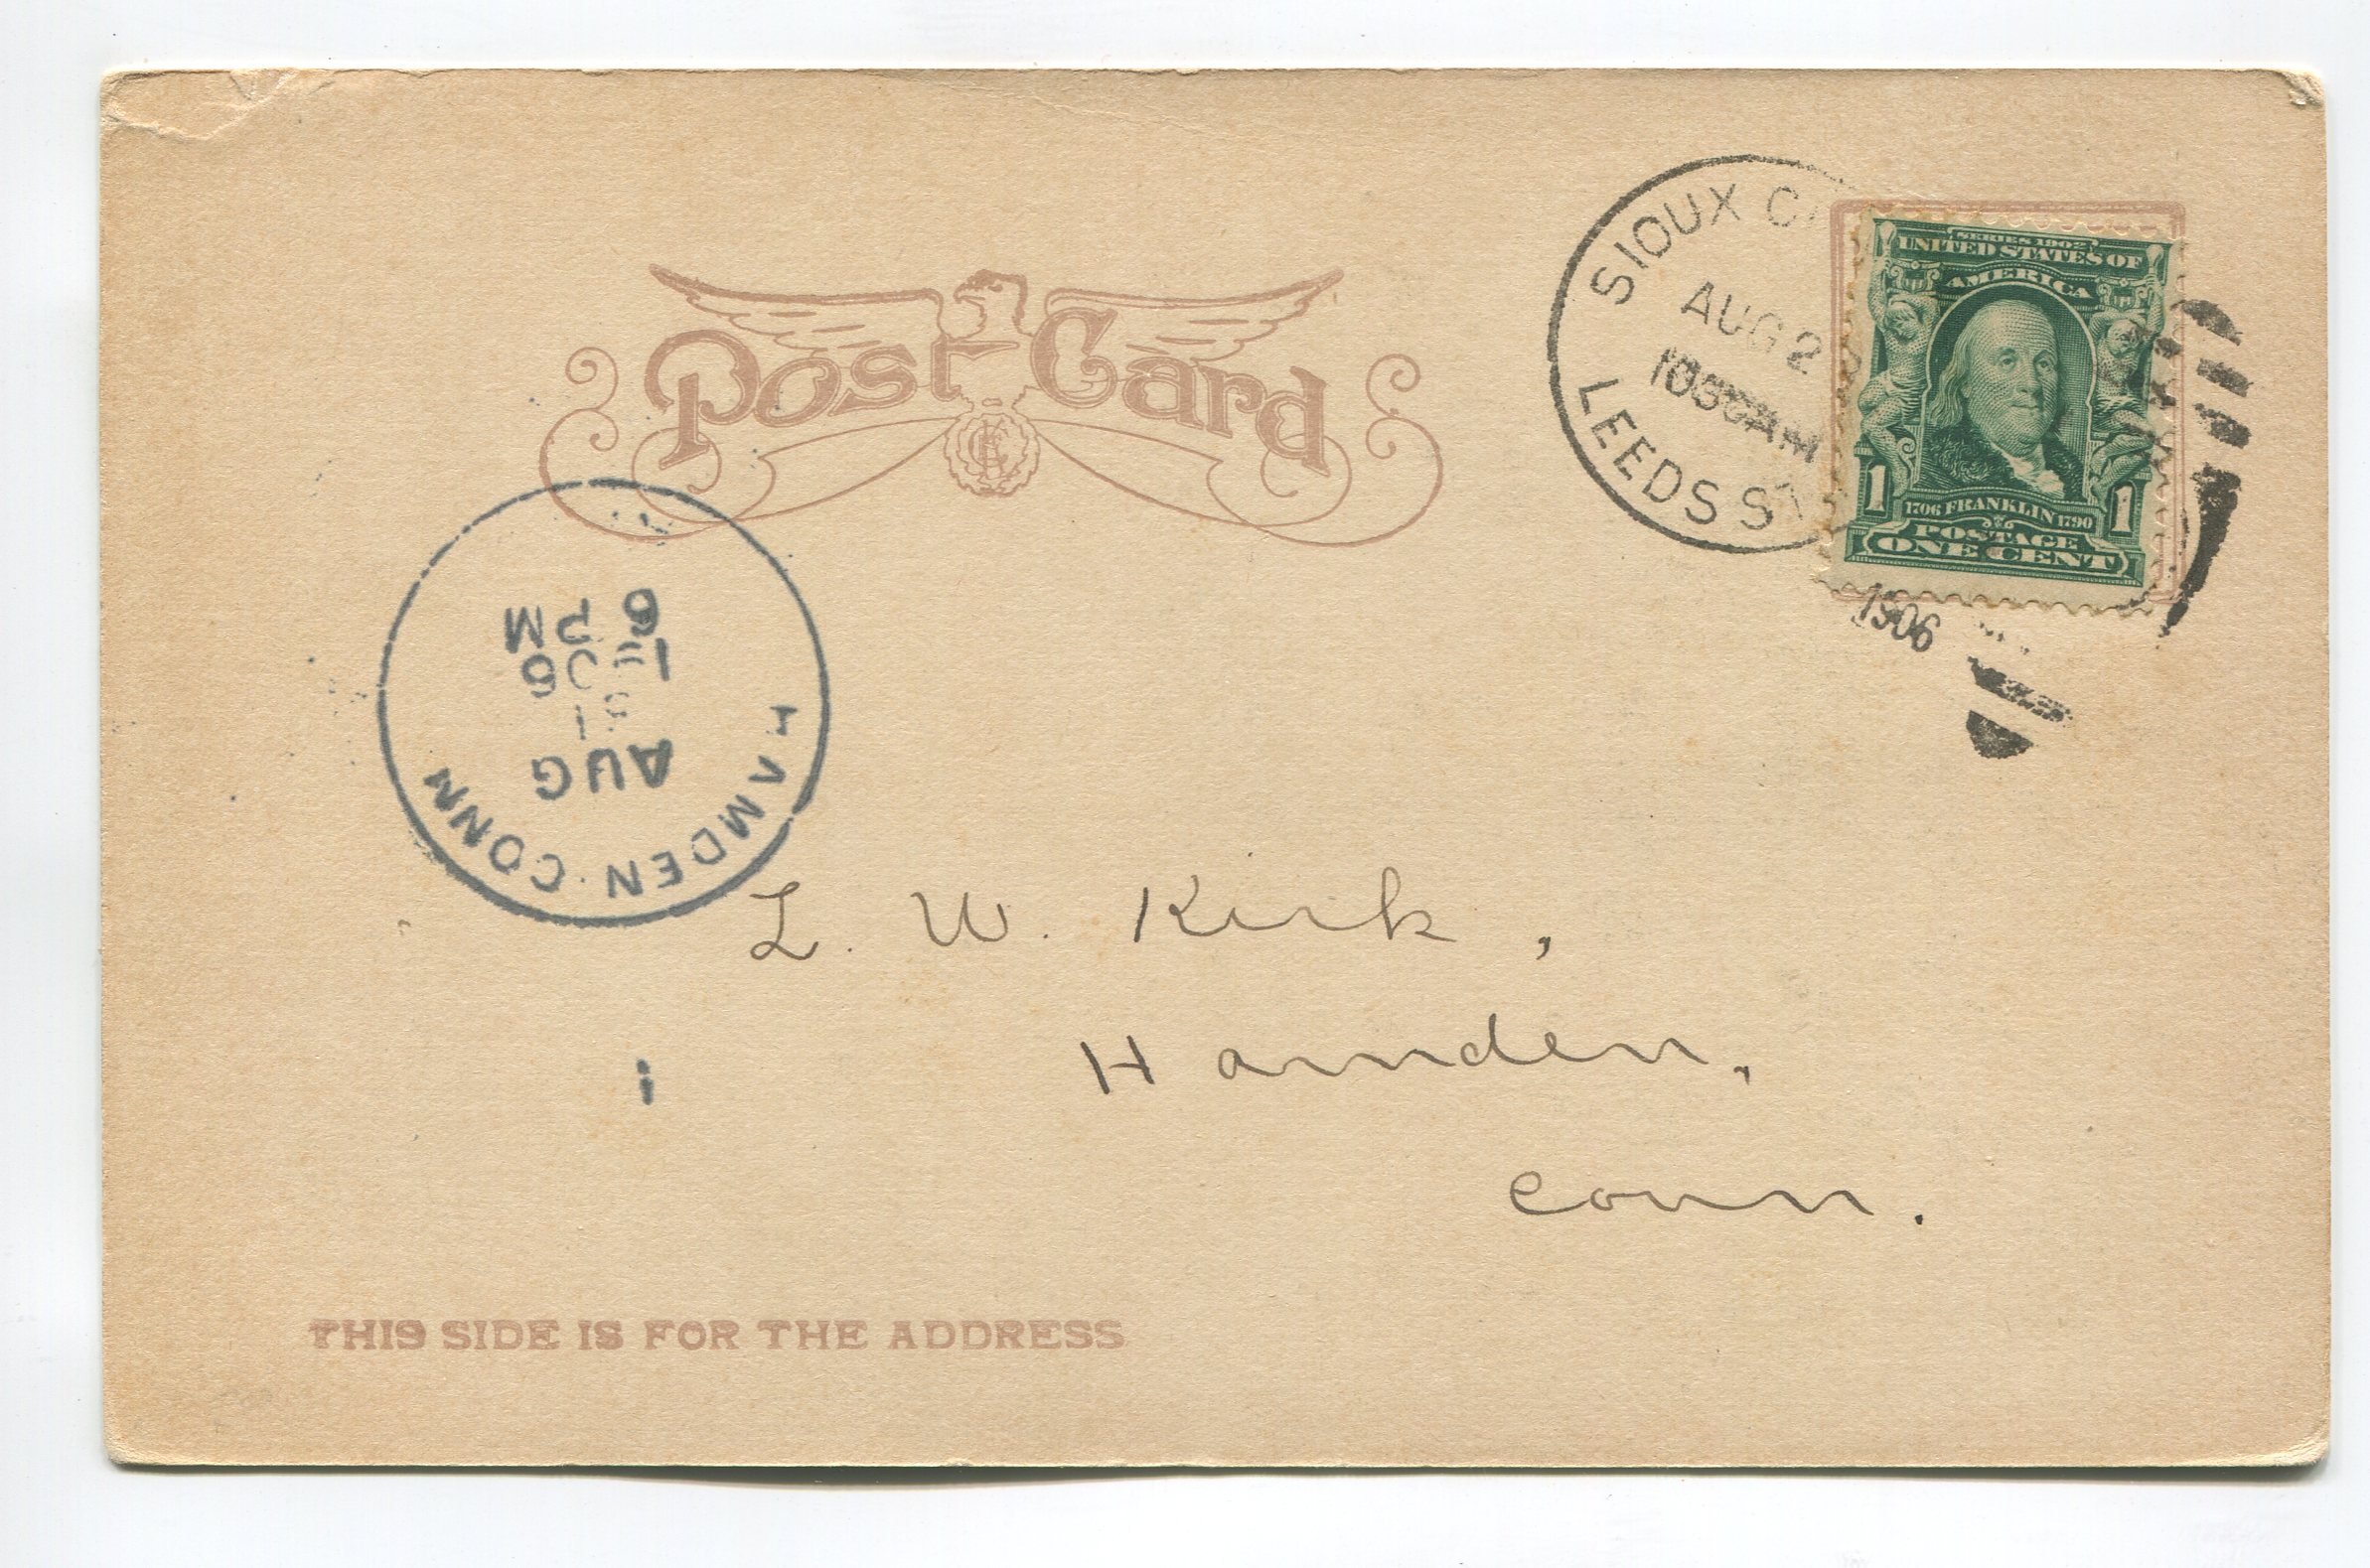 Post Card
SIOUX
AUG 2
AM
LEEDS
SERIES 1902
UNITED STATES OF
AMERICA
1 1
1706 FRANKLIN 1790
POSTAGE
ONE CENT
1906
HAMDEN CONN
AUG
PM
L. W. Kirk,
Hamden,
Conn.
THIS SIDE IS FOR THE ADDRESS